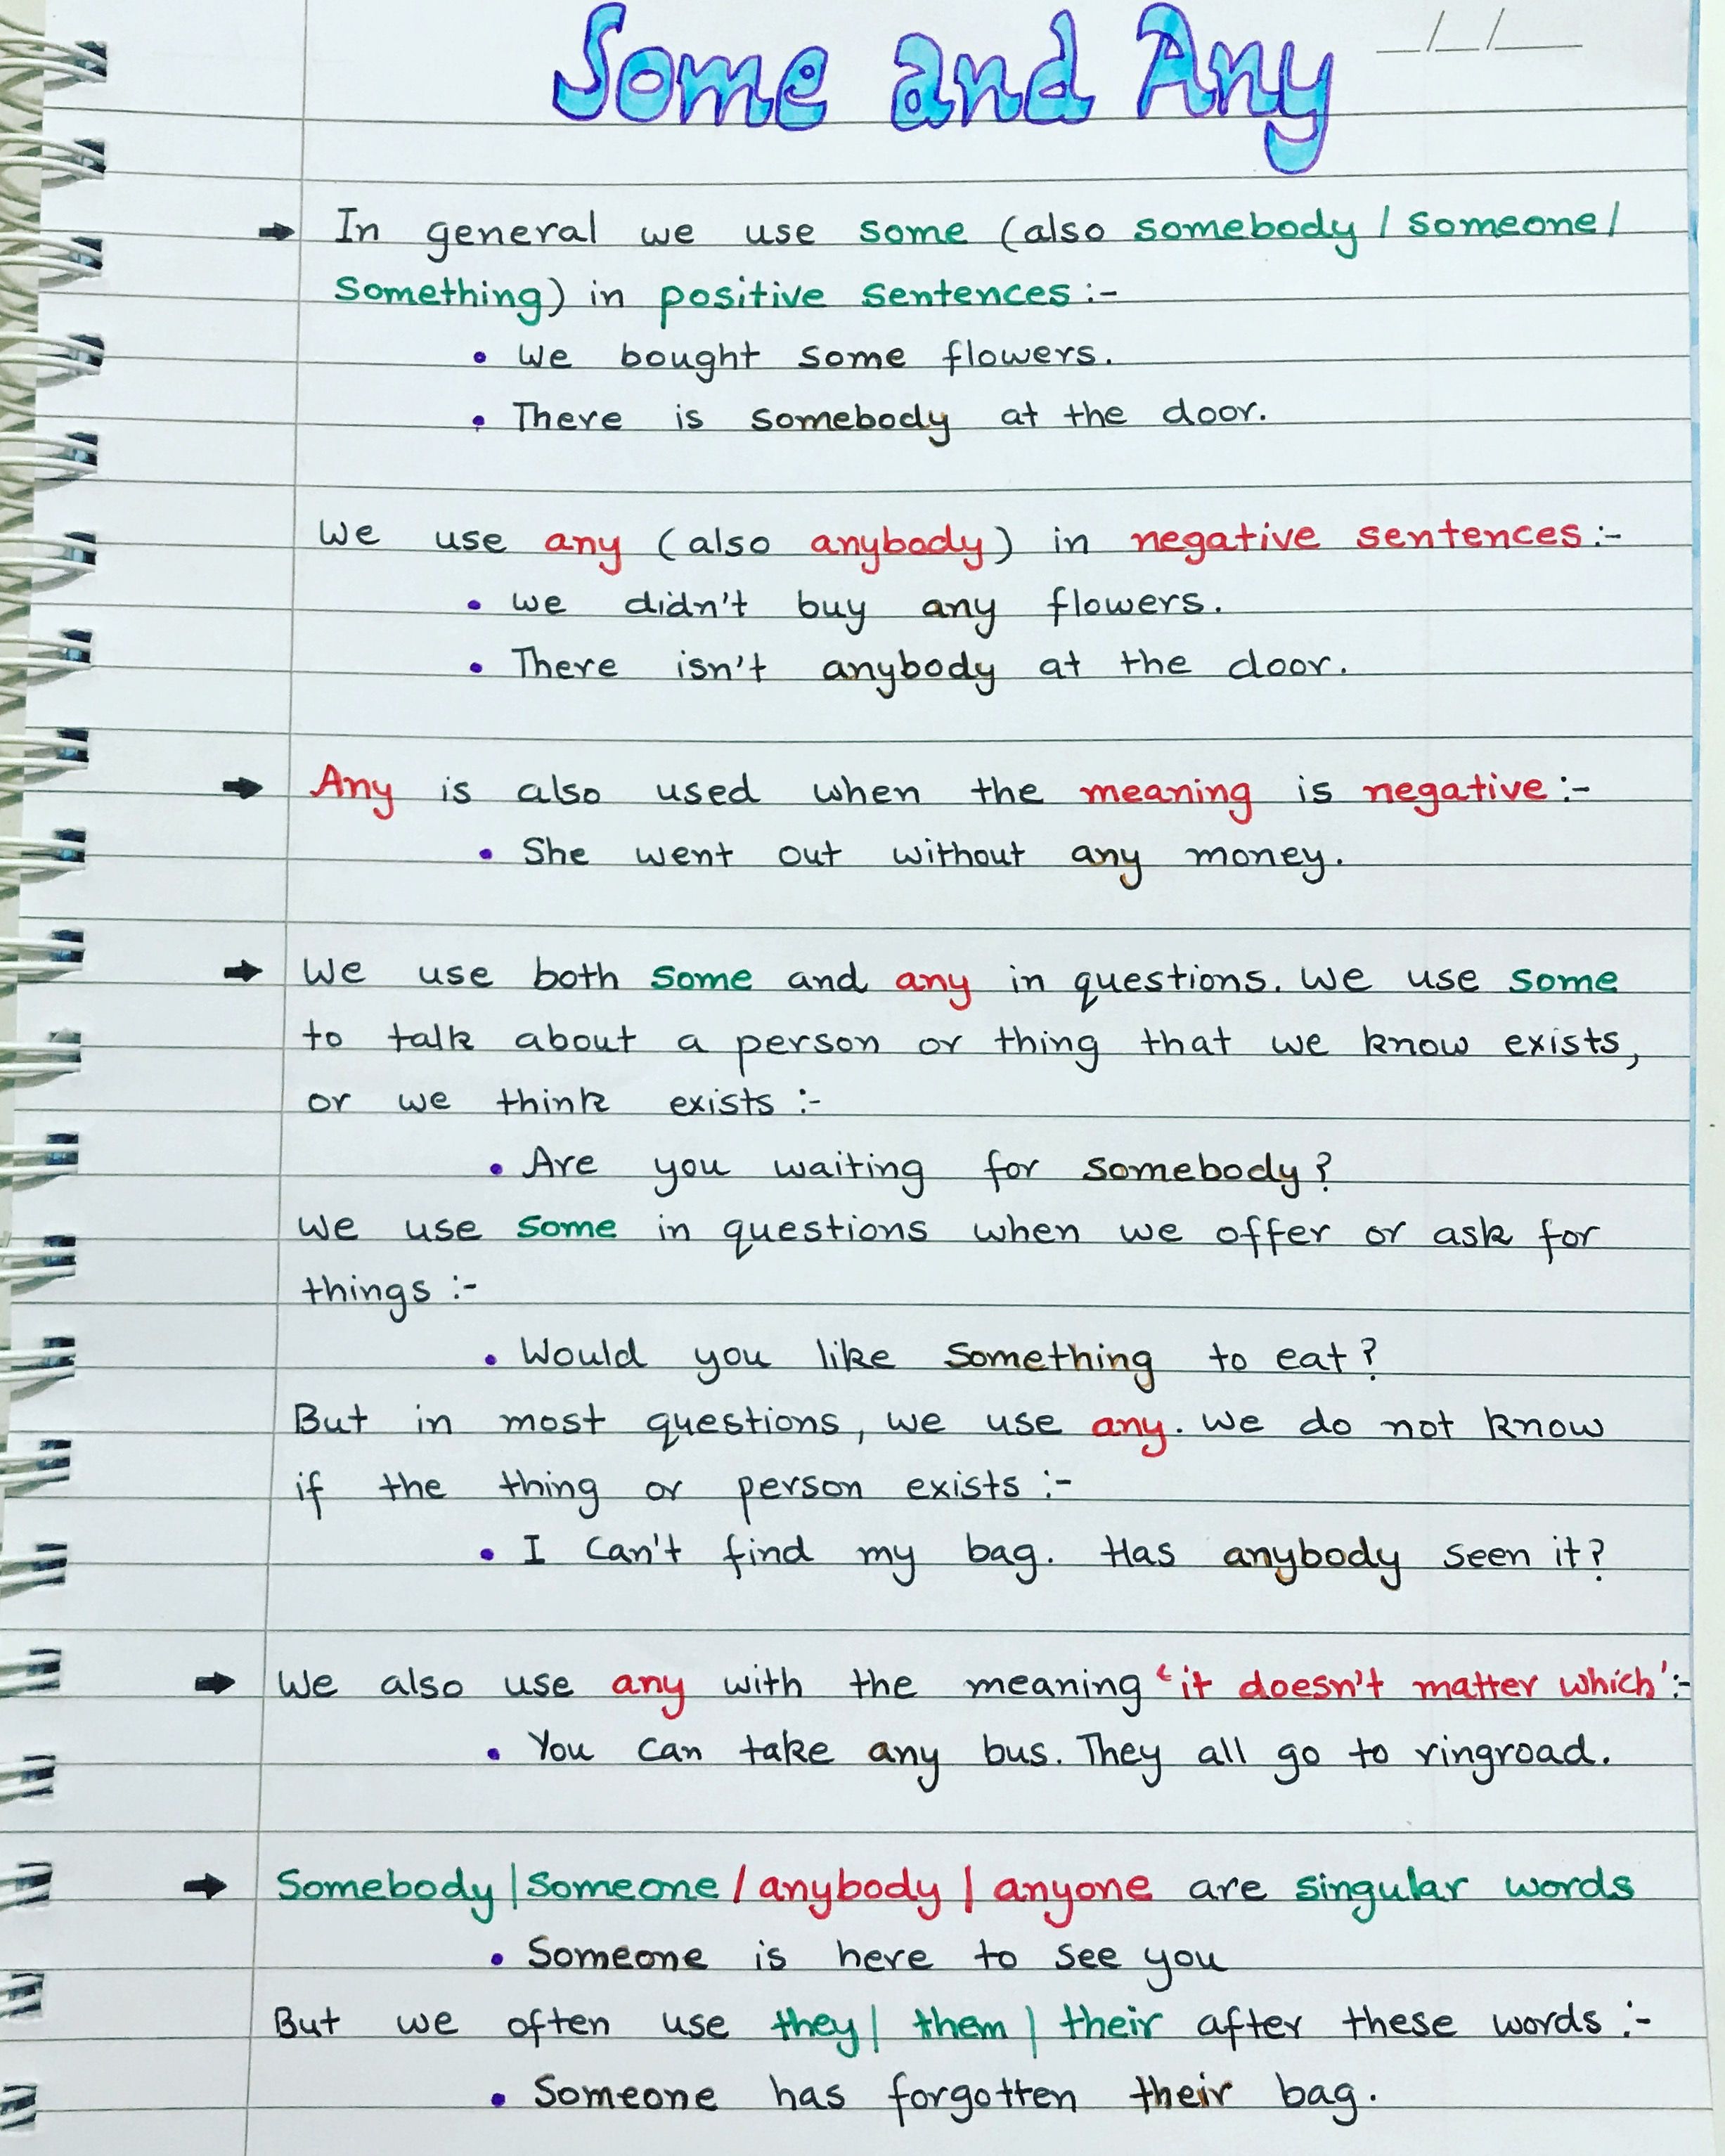 Some and Any
__/__/____
➡ In general we use some (also somebody / someone /
Something) in positive sentences :-
• We bought some flowers.
• There is somebody at the door.
We use any (also anybody) in negative sentences :-
• We didn't buy any flowers.
• There isn't anybody at the door.
➡ Any is also used when the meaning is negative :-
• She went out without any money.
➡ We use both some and any in questions. We use some
to talk about a person or thing that we know exists,
or we think exists :-
• Are you waiting for somebody?
We use some in questions when we offer or ask for
things :-
• Would you like something to eat?
But in most questions, we use any. We do not know
if the thing or person exists :-
• I can't find my bag. Has anybody seen it?
➡ We also use any with the meaning 'it doesn't matter which' :-
• You can take any bus. They all go to ringroad.
➡ Somebody | Someone / anybody | anyone are singular words
• Someone is here to see you
But we often use they | them | their after these words :-
• Someone has forgotten their bag.